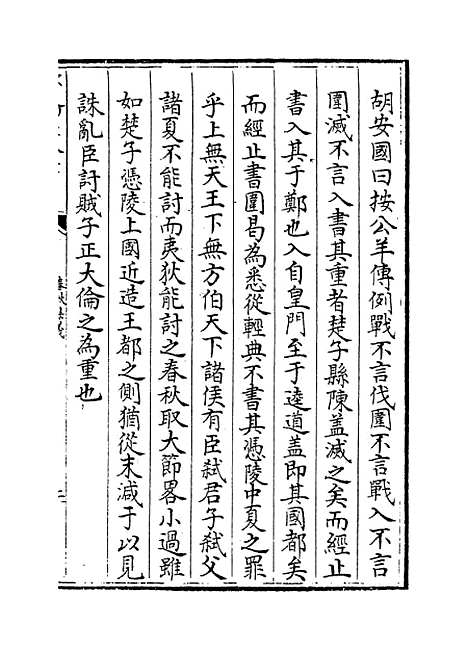 胡安國曰按公羊傳例戰不言伐圍不言戰入不言
圍滅不言入書其重者楚子縣陳蓋滅之矣而經止
書入其于鄭也入自皇門至于逵道蓋即其國都矣
而經止書圍曷為悉從輕典不書其憑陵中夏之罪
乎上無天王下無方伯天下諸侯有臣弒君子弒父
諸夏不能討而夷狄能討之春秋取大節畧小過雖
如楚子憑陵上國近造王都之側猶從末減于以見
誅亂臣討賊子正大倫之為重也